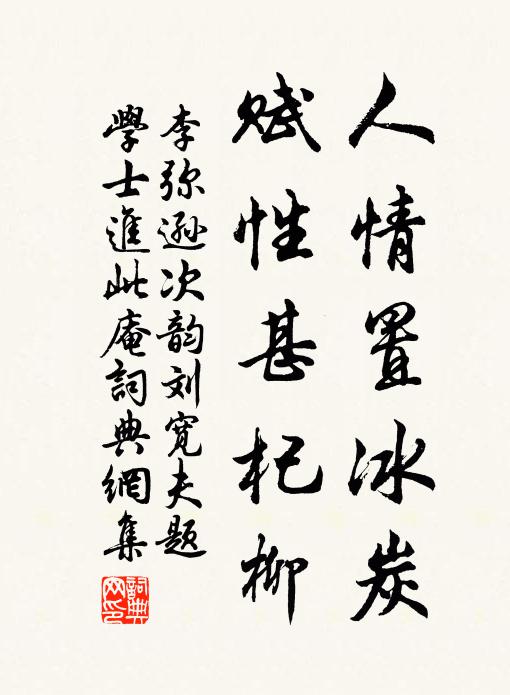 人情置冰炭
賦性甚杞柳
李弥遜次韵刘寬夫题
學士進此庵詞典網集
詞典网印